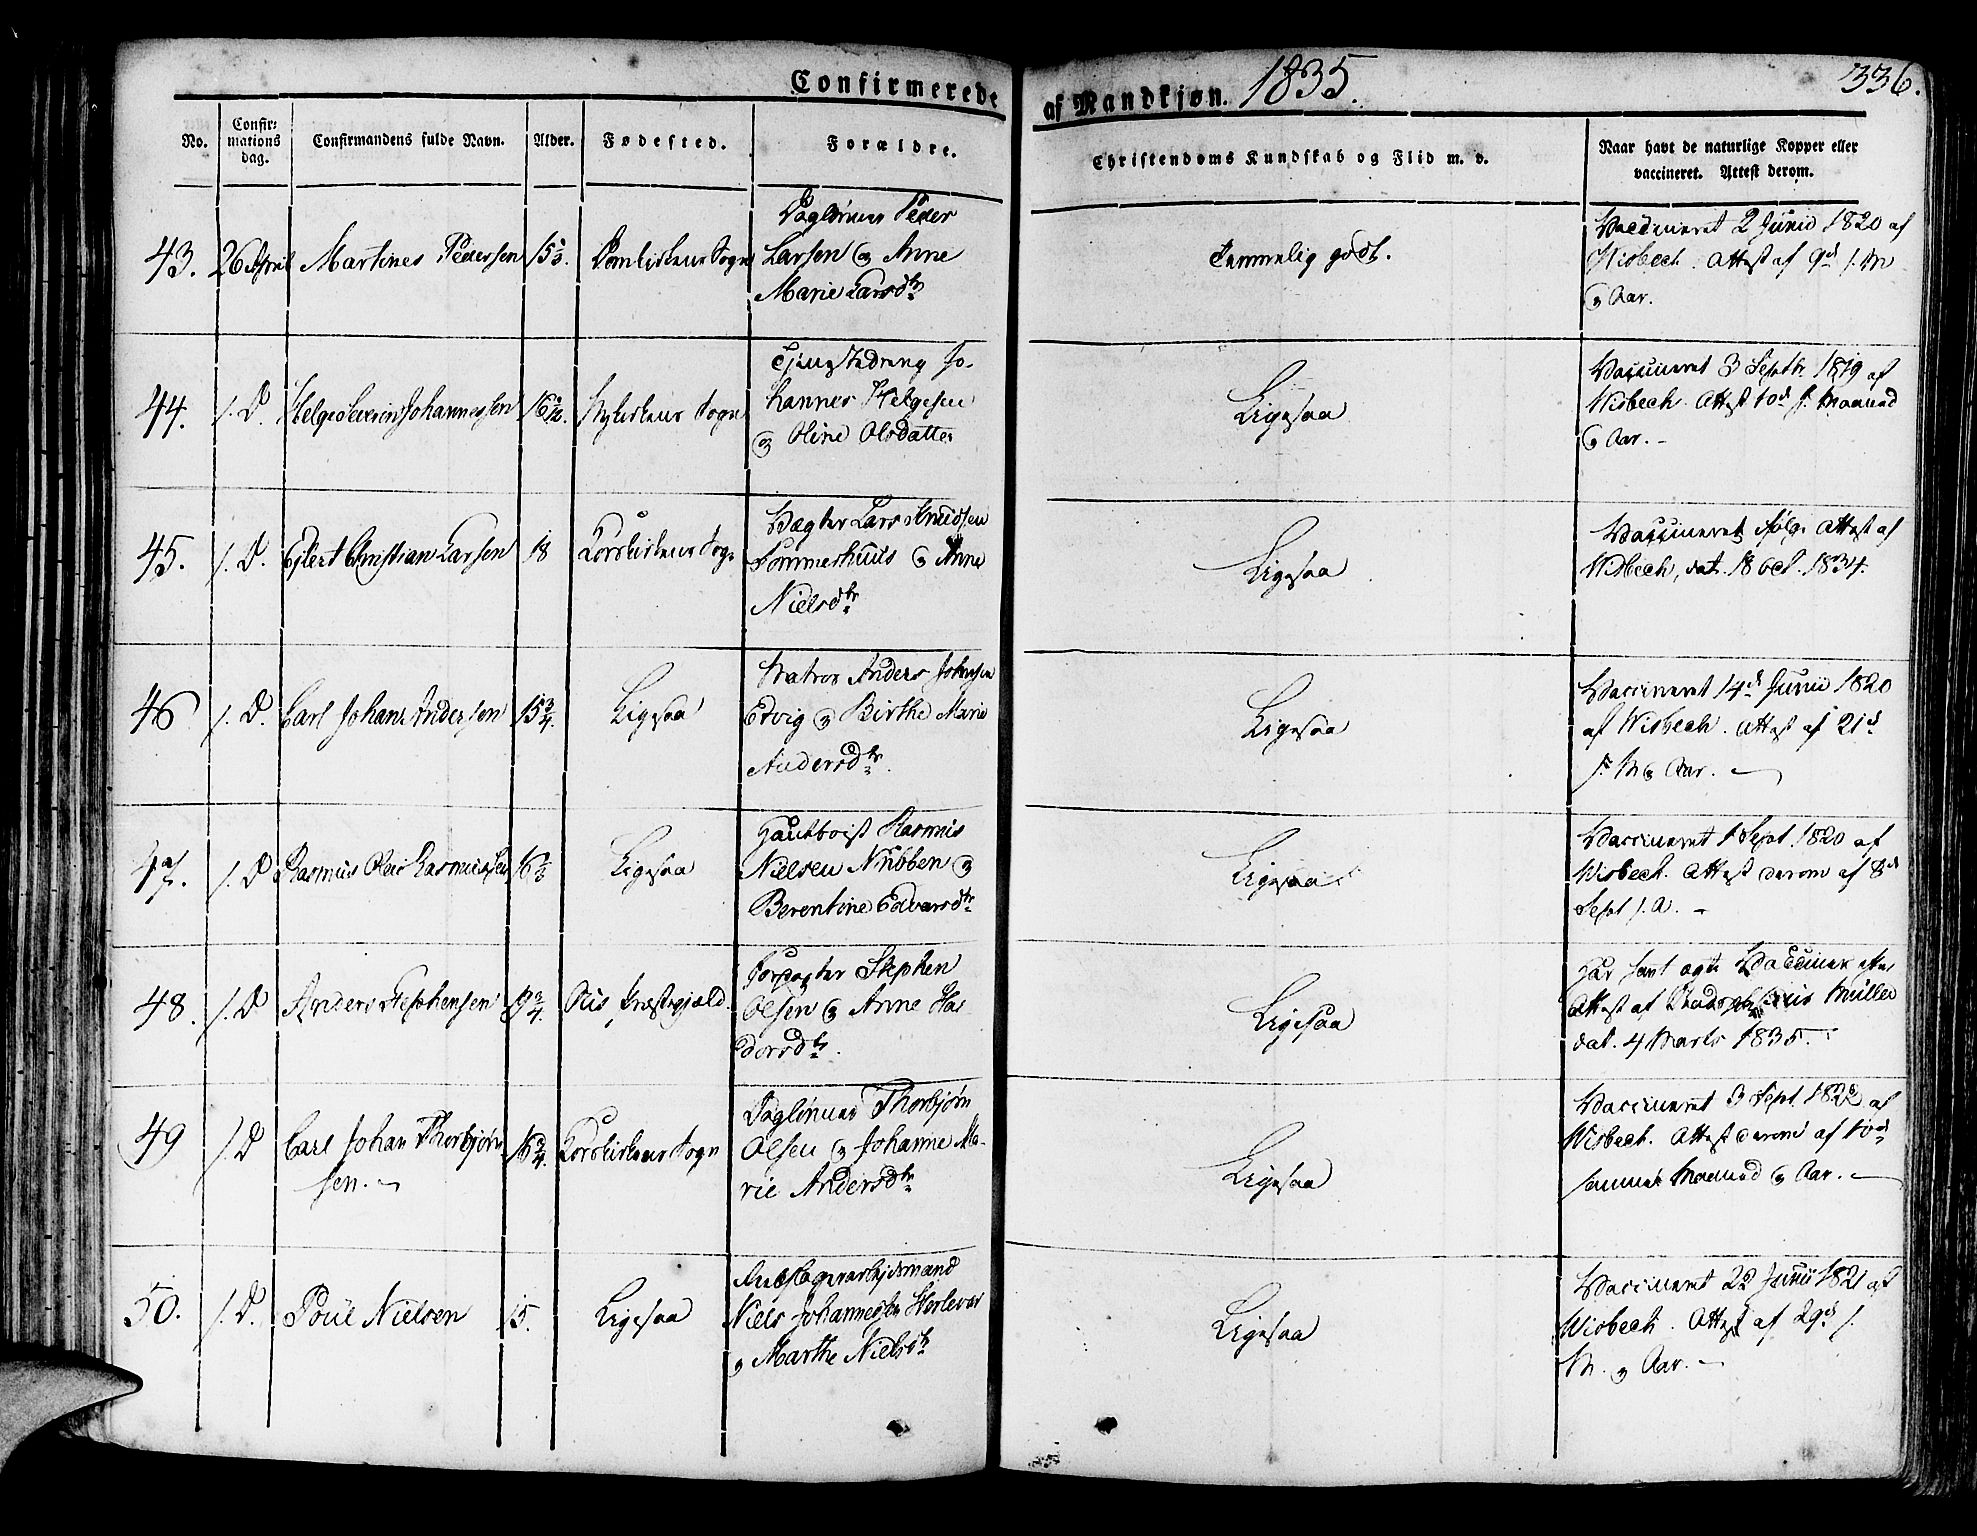 Confirmerede af Mandkjøn. 1835. 336.
No. Confir-mations dag. Confirmandens fulde Navn. Alder. Fødested. Forældre. Christendoms Kundskab og Flid m. v. Naar havt de naturlige Kopper eller vaccineret. Attest derom.
43. 26 April Martines Pedersen 15 Domkirkens Sogn
Daglønner Peder
Larsen og Anne
Marie Larsdtr
Temmelig godt.
Vaccineret 2 Junio 1820 af
Wisbech. Attest af 9d s. M
og Aar.
44. s. D. Helge Severin Johannessen 16 Nykirkens Sogn
Tjenestedreng Jo-
hannes Helgesen
og Oline Olsdatter
Ligesaa
Vaccineret 3 Septbr. 1819 af
Wisbech. Attest 10d s. Maaned
og Aar. -
45. s. D. Ejlert Christian Larsen 18 Korskirkens Sogn
Vægter Lars Knudsen
Sommerhuus og Anne
Nielsdtr
Ligesaa
Vaccineret ifølge Attest af
Wisbech, dat. 18 Oct. 1834.
46 s. D. Carl Johan Andersen 15 3/4. Ligesaa
Matros Anders Johnsen
Edvig og Birthe Marie
Andersdtr.
Ligesaa
Vaccineret 14d Junii 1820
af Wisbech. Attest af 21d
s. M og Aar. -
47. s. D Rasmus Olai Rasmussen 16 Ligesaa
Hautboist Rasmus
Nielsen Knibben og
Berentine Edvarsdtr
Ligesaa
Vaccineret 1 Sept. 1820 af
Wisbech. Attest derom af 8d
Sept s. A. -
48. s. D Anders Stephensen 19 3/4. Ous Præstegjæld.
Forpagter Stephen
Olsen og Anne Has-
dorsdtr.
Ligesaa
Har havt ægte Vacciner efter
Attest af Müller
dat. 4 Marts 1835.
49 s. D Carl Johan Thorbjørn-
sen. - 16 3/4. Korskirkens Sogn
Daglønner Thorbjørn
Olsen og Johanne Ma-
rie Andersdtr
Ligesaa
Vaccineret 3 Sept. 1822 af
Wisbech. Attest derom af 10d
samme Maaned og Aar. -
50. s. D. Poul Nielsen 15. Ligesaa
Niels Johannessen
og Marthe Nielsdtr
Ligesaa
Vaccineret 22 Junii 1821 af
Wisbech. Attest af 29d s.
M. og Aar. -